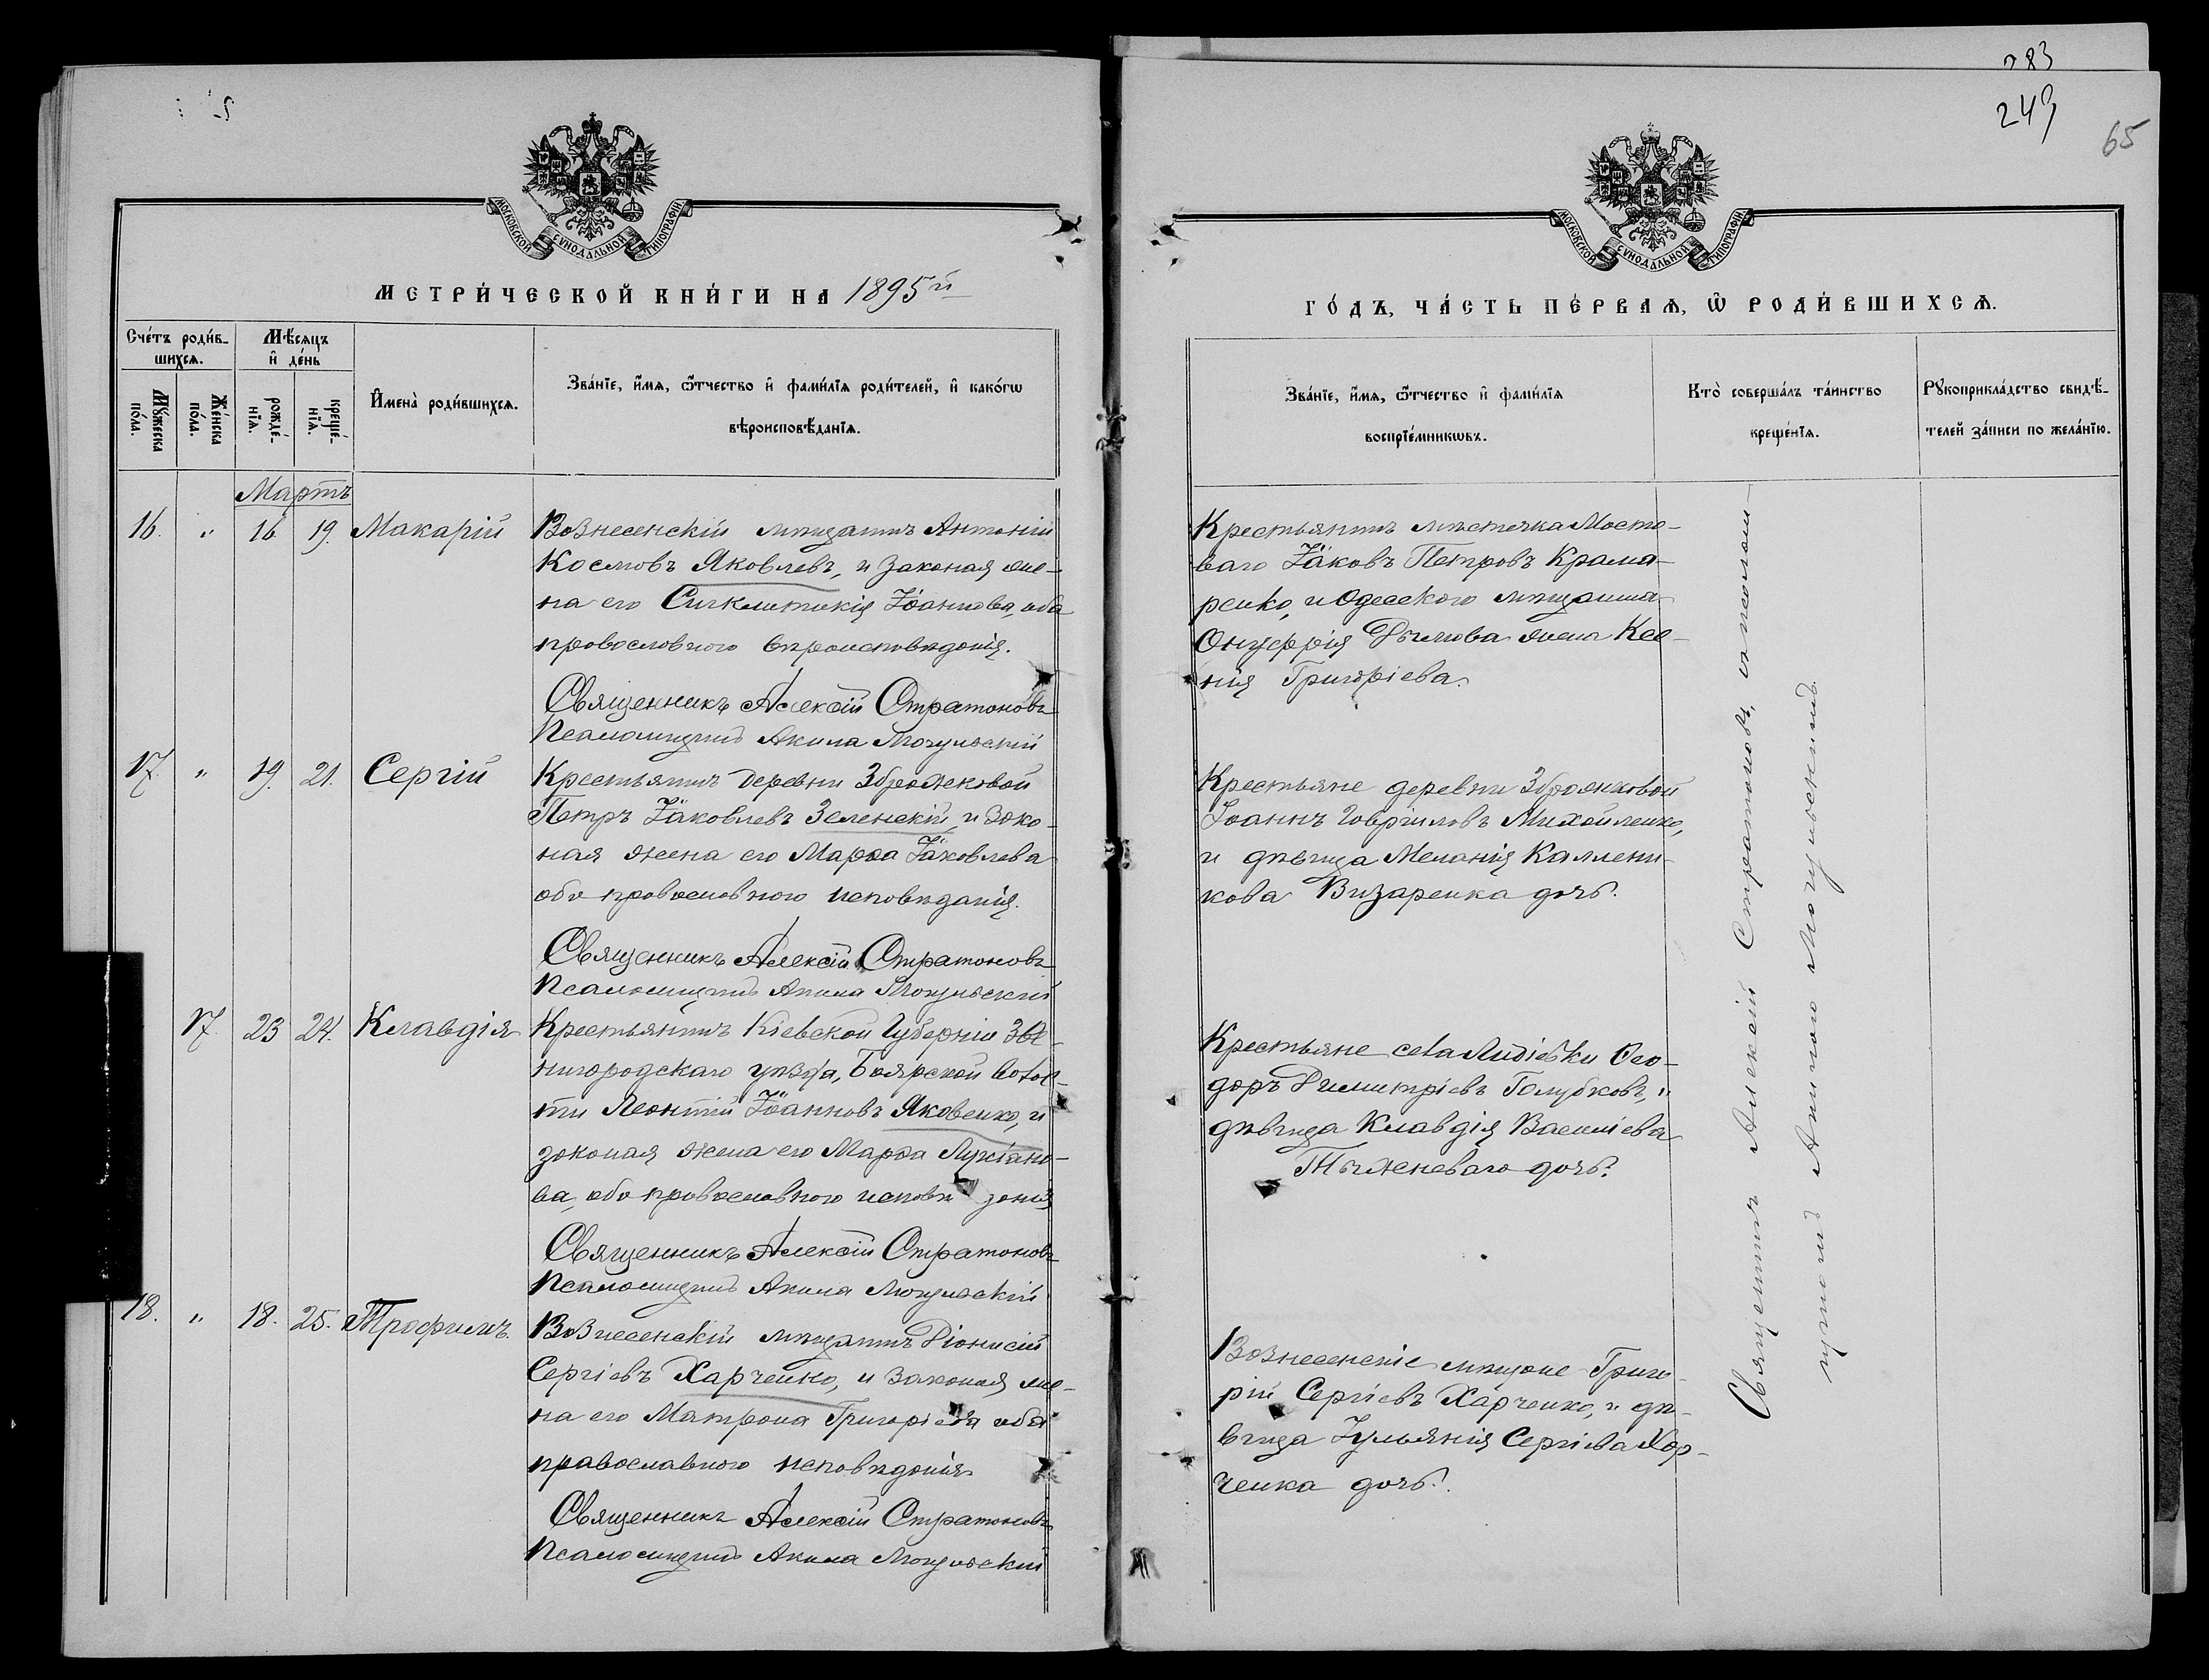 283
249
65
МОСКОВСКОЙ СѴНОДАЛЬНОЙ ТИПОГРАФІИ
МЕТРИ́ЧЕСКОЙ КНИ́ГИ НА 1895й
Сче́тъ роди́в-
шихсѧ.
Мꙋ́жеска по́ла.
Же́нска по́ла.
Мѣ́сяцъ
и҆ де́нь
рожде́-
нїѧ.
креще́-
нїѧ.
И҆мена̀ роди́вшихсѧ.
Зва́нїе, и҆́мѧ, ѻ҆́тчество и҆ фами́лїѧ роди́телей, и҆ како́гѡ
вѣроисповѣ́данїѧ.
Мартъ
16. " 16 19. Макарій
Вознесенскій мѣщанинъ Антоній
Космовъ Яковлевъ, и законая же-
на его Сигклитикія Іоаннова, оба
православного вѣроисповѣданія.
Священникъ Алексій Стратоновъ
Псаломщикъ Акила Могульскій
17. " 19. 21. Сергій
Крестьянинъ деревни Зброжковой
Петръ Іаковлевъ Зеленскій, и зако-
ная жена его Марѳа Іаковлева
оба православного исповѣданія.
Священникъ Алексій Стратоновъ
Псаломщикъ Акила Могульскій
17. 23 24. Клавдія
Крестьянинъ Кіевской Губерніи Зве-
нигородскаго уѣзда, Боярской волос-
ти Леонтій Іоанновъ Яковенко, и
законая жена его Марѳа Лукіано-
ва, оба православного исповѣданія
Священникъ Алексій Стратоновъ
Псаломщикъ Акила Могульскій
18. " 18. 25. Трофимъ.
Вознесенскій мѣщанинъ Діонисій
Сергіевъ Харченко, и законая же-
на его Матрона Григоріева оба
православного исповѣданія
Священникъ Алексій Стратоновъ
Псаломщикъ Акила Могульскій
МОСКОВСКОЙ СѴНОДАЛЬНОЙ ТИПОГРАФІИ
ГО́ДЪ, ЧА́СТЬ ПЕ́РВАѦ, Ѡ҆ РОДИ́ВШИХСѦ.
Зва́нїе, и҆́мѧ, ѻ҆́тчество и҆ фами́лїѧ
воспрїе́мникѡвъ.
Кто̀ соверша́лъ та́инство
креще́нїѧ.
Рꙋкоприкла́дство свидѣ́-
телей за́писи по жела́нїю.
Крестьянинъ мѣстечка Мосто-
ваго Іаковъ Петровъ Крама-
ренко, и Одесскаго мѣщанина
Онуфрія жена Ксе-
нія Григоріева.
Крестьяне деревни Зброжковой
Іоаннъ Гавріиловъ Михайленко,
и дѣвица Меланія Каллени-
кова Визаренка дочь.
Крестьяне села Лидіевки Ѳео-
доръ Димитріевъ Голубковъ, и
дѣвица Клавдія Василіева
Тыженеваго дочь.
Вознесенскіе мѣщане Григо-
рій Сергіевъ Харченко, и дѣ-
вица Іульянія Сергіева Хар-
ченка дочь.
Священникъ Алексій Стратоновъ, съ псаломщ-
Акилою Могульскимъ.